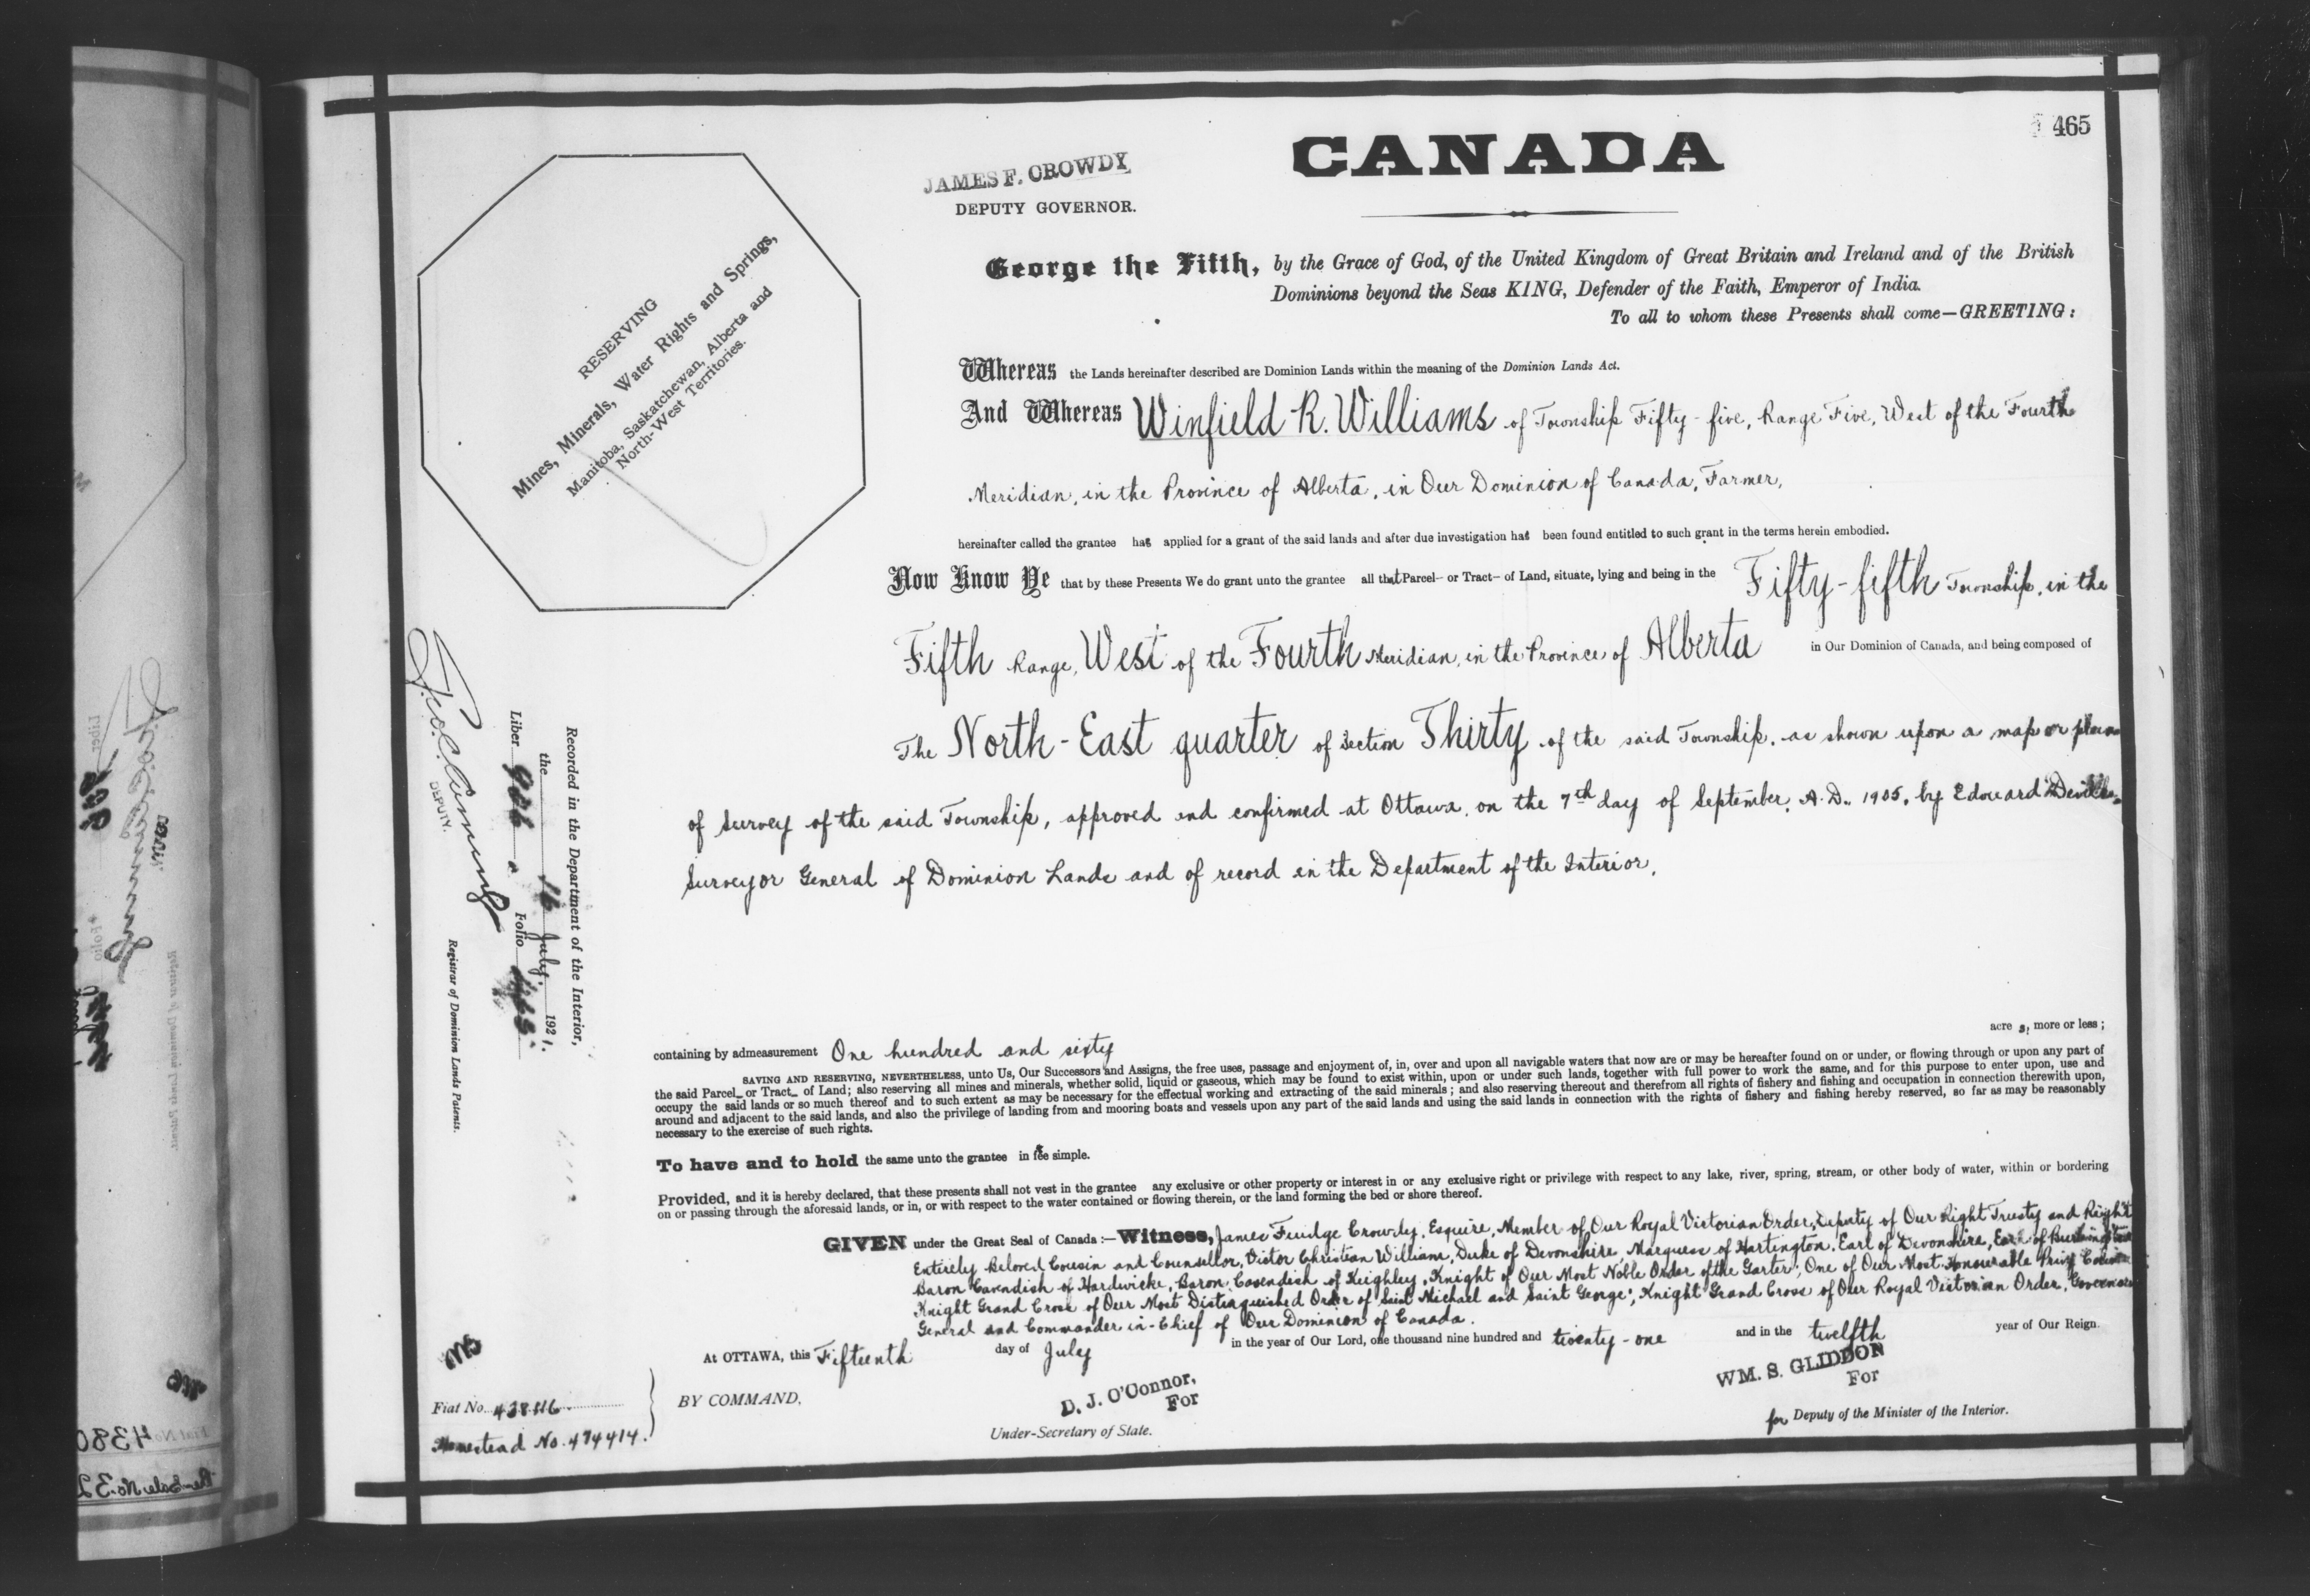 465
CANADA
JAMES F. CROWDY
DEPUTY GOVERNOR.
RESERVING
Mines, Minerals, Water Rights and Springs,
Manitoba, Saskatchewan, Alberta and
North-West Territories.
George the Fifth, by the Grace of God, of the United Kingdom of Great Britain and Ireland and of the British
Dominions beyond the Seas KING, Defender of the Faith, Emperor of India.
To all to whom these Presents shall come—GREETING:
Whereas the Lands hereinafter described are Dominion Lands within the meaning of the Dominion Lands Act.
And Whereas Winfield R. Williams of Township Fifty-five, Range Five, West of the Fourth
Meridian, in the Province of Alberta, in Our Dominion of Canada, Farmer,
hereinafter called the grantee has applied for a grant of the said lands and after due investigation has been found entitled to such grant in the terms herein embodied.
Now Know Ye that by these Presents We do grant unto the grantee all that Parcel- or Tract- of Land, situate, lying and being in the Fifty-fifth Township, in the
Fifth Range, West of the Fourth Meridian, in the Province of Alberta in Our Dominion of Canada, and being composed of
The North-East quarter of Section Thirty of the said Township, as shown upon a map or plan
of Survey of the said Township, approved and confirmed at Ottawa, on the 7th day of September, A.D. 1905, by Edouard Deville,
Surveyor General of Dominion Lands and of record in the Department of the Interior.
Recorded in the Department of the Interior,
the 16 July, 1921.
Liber Folio
Geo. C. Cumming
DEPUTY.
Registrar of Dominion Lands Patents.
containing by admeasurement One hundred and sixty acres, more or less;
SAVING AND RESERVING, NEVERTHELESS, unto Us, Our Successors and Assigns, the free uses, passage and enjoyment of, in, over and upon all navigable waters that now are or may be hereafter found on or under, or flowing through or upon any part of
the said Parcel_ or Tract_ of Land; also reserving all mines and minerals, whether solid, liquid or gaseous, which may be found to exist within, upon or under such lands, together with full power to work the same, and for this purpose to enter upon, use and
occupy the said lands or so much thereof and to such extent as may be necessary for the effectual working and extracting of the said minerals; and also reserving thereout and therefrom all rights of fishery and fishing and occupation in connection therewith upon,
around and adjacent to the said lands, and also the privilege of landing from and mooring boats and vessels upon any part of the said lands and using the said lands in connection with the rights of fishery and fishing hereby reserved, so far as may be reasonably
necessary to the exercise of such rights.
To have and to hold the same unto the grantee in fee simple.
Provided, and it is hereby declared, that these presents shall not vest in the grantee any exclusive or other property or interest in or any exclusive right or privilege with respect to any lake, river, spring, stream, or other body of water, within or bordering
on or passing through the aforesaid lands, or in, or with respect to the water contained or flowing therein, or the land forming the bed or shore thereof.
GIVEN under the Great Seal of Canada:—Witness, James Fuidge Crowdy, Esquire, Member of Our Royal Victorian Order, Deputy of Our Right Trusty and Right
Entirely Beloved Cousin and Counsellor, Victor Christian William, Duke of Devonshire, Marquess of Hartington, Earl of Devonshire, Earl of Burlington
Baron Cavendish of Hardwicke, Baron Cavendish of Keighley, Knight of Our Most Noble Order of the Garter; One of Our Most Honourable Privy Council
Knight Grand Cross of Our Most Distinguished Order of Saint Michael and Saint George; Knight Grand Cross of Our Royal Victorian Order, Governor
General and Commander-in-Chief of Our Dominion of Canada.
At OTTAWA, this Fifteenth day of July in the year of Our Lord, one thousand nine hundred and twenty-one and in the twelfth year of Our Reign.
BY COMMAND,
D. J. O'Connor,
For
Under-Secretary of State.
WM. S. GLIDDON
For
for Deputy of the Minister of the Interior.
Fiat No.
Homestead No. 474414.